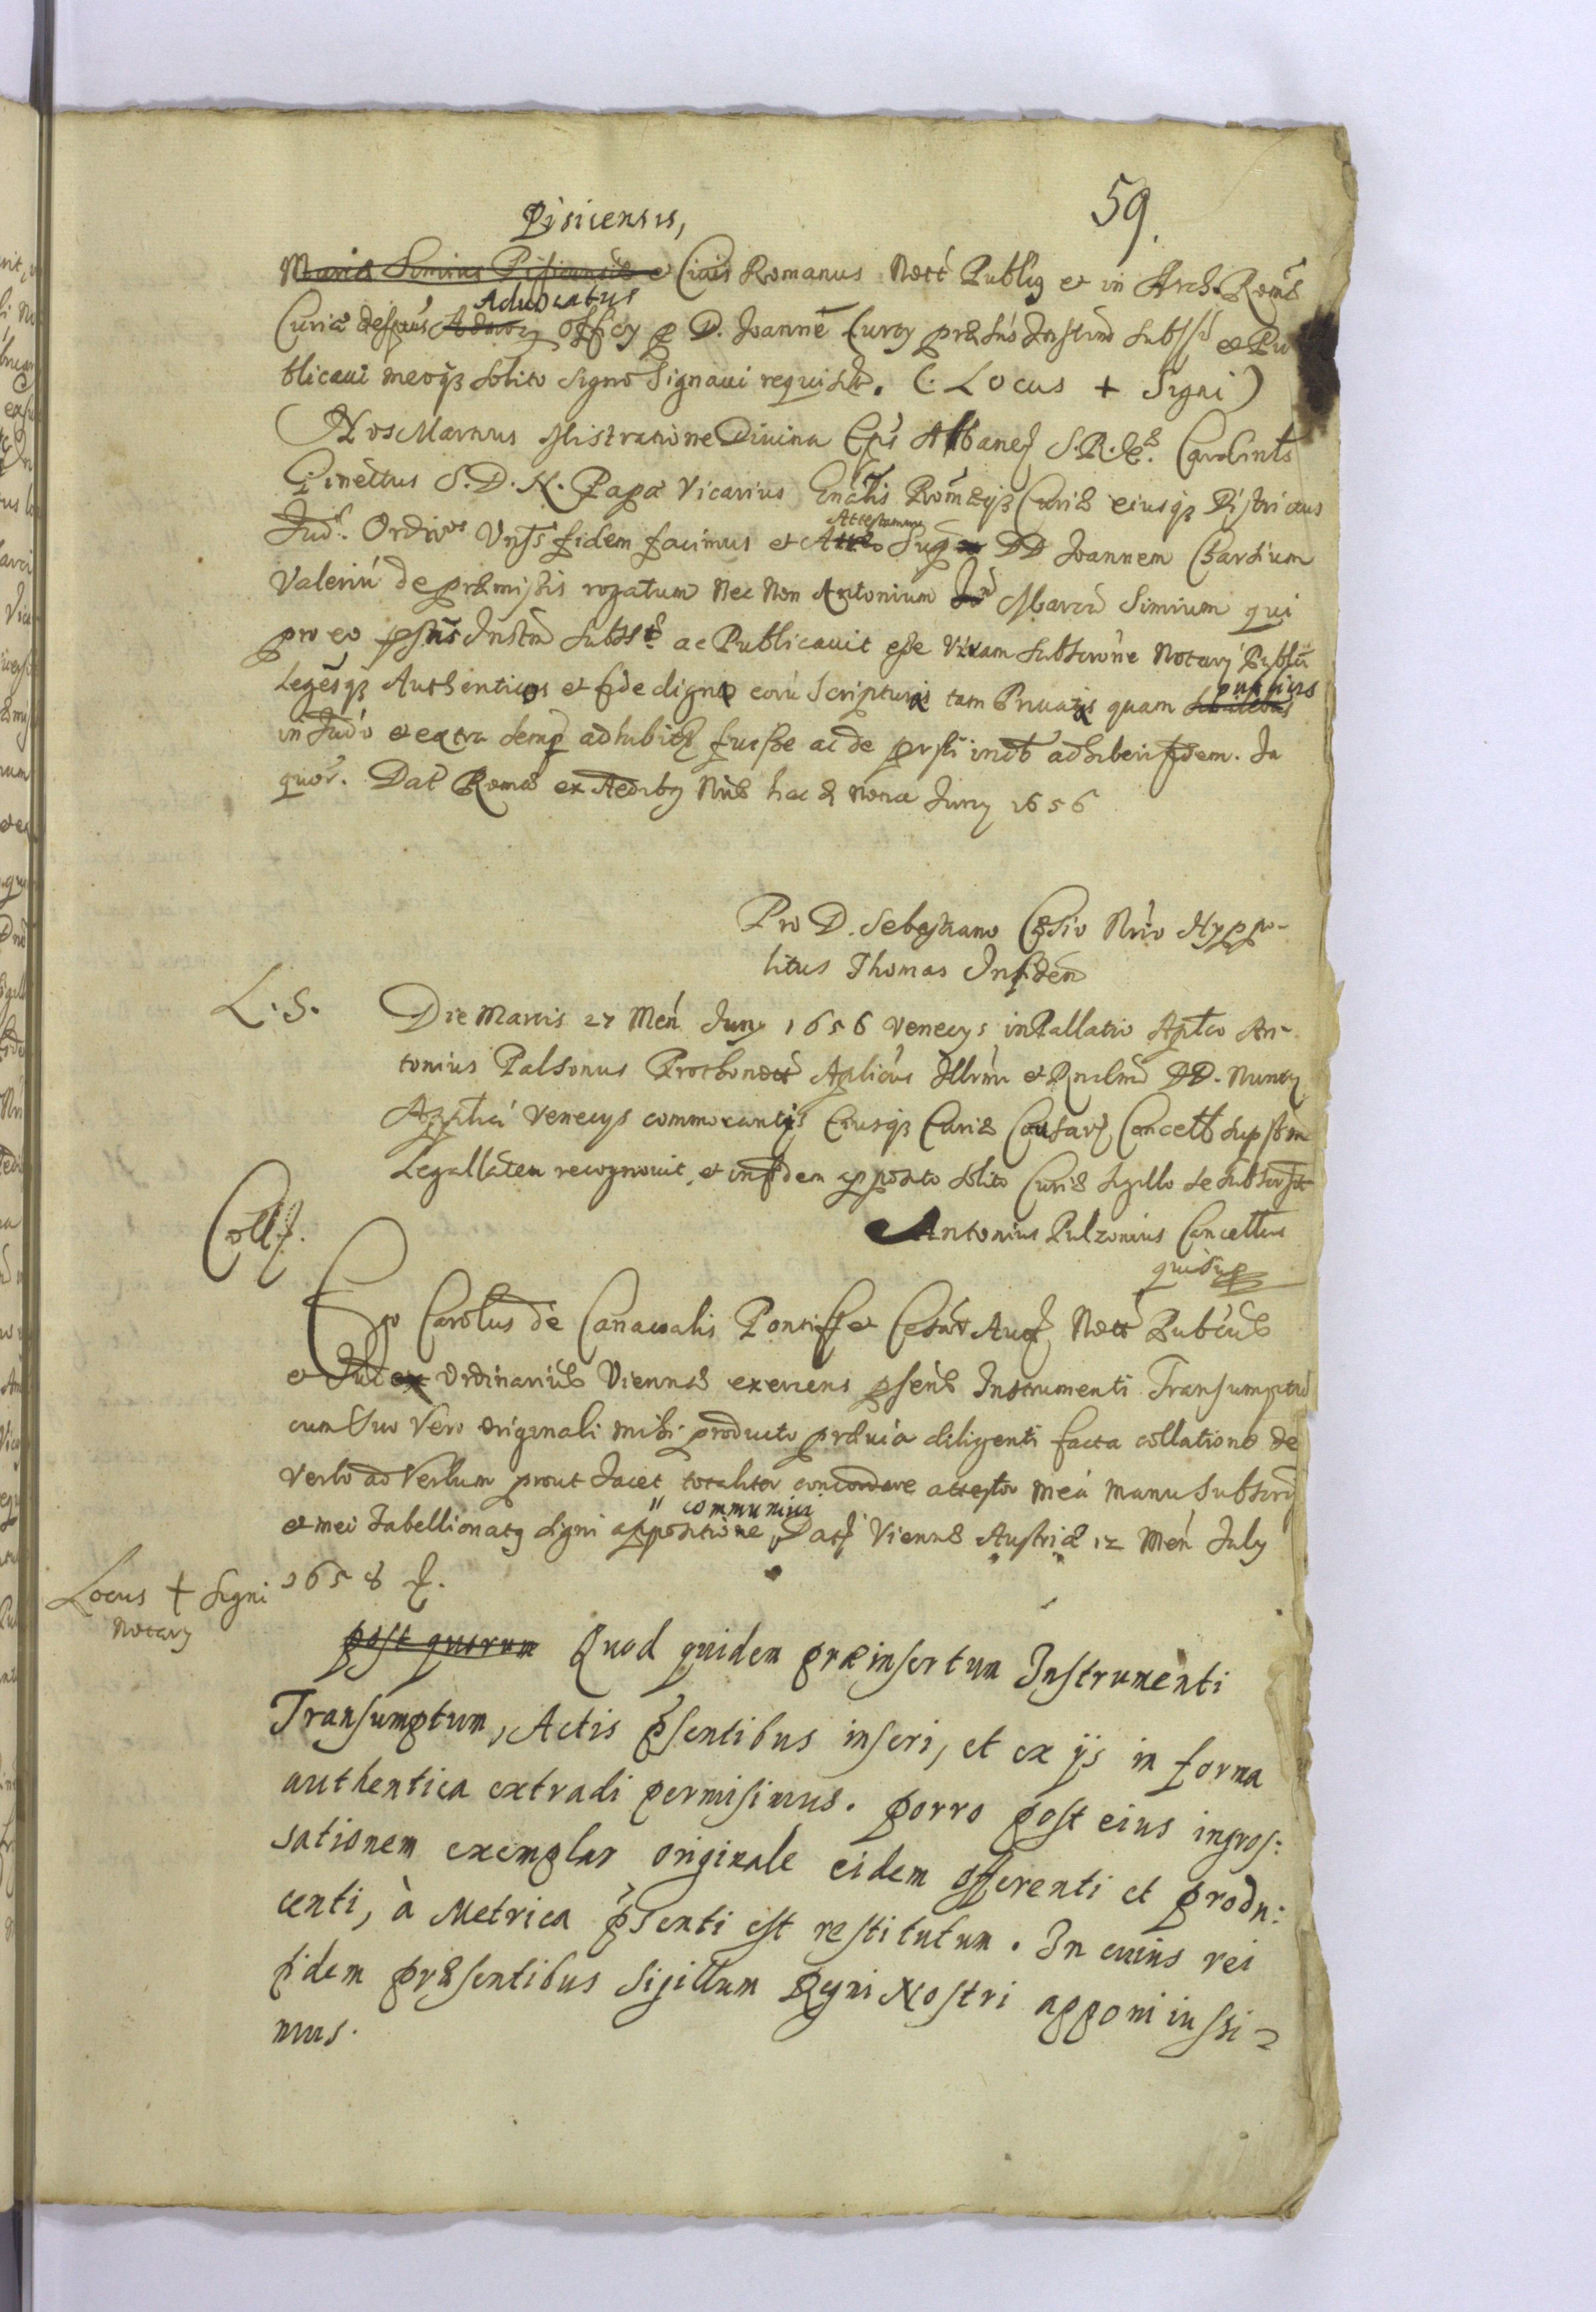 59.
Pisiensis,
Maria Simius Pisiensis et Ciuis Romanus Nott Publiq et in Arch. Romę
Aduocatus
Curia desptus officy p D. Joannē Curty Instrum subssi et Pu
blicaui meoqꝫ solito signo signaui requisit. (: Locus + Signi)
Nos Martius Mistratione Diuina Eps Albaneñ S.R.E. Cardinlis
Ginettus S.D.N. Papa Vicarius Gnalis Romęqꝫ Curię eiusqꝫ Districtus
Attestamur
Jud. Ordin Vnts fidem facimus et DD Joannem Chartium
Valeriū de pręmissis rogatum Nec Non Antonium Marcū Simium qui
pro eo pstns Instm subsst ac Publicauit esse Viuam subscrōne Notary Publū
publicis
Legesqꝫ Authenticos et fide dignos eorū Scripturis tam Priuatis quam
in Judō et extra semp adhibitę fuisse ac de prsti indt adhiberi fidem. In
quor. Dat Romę ex Aedibꝫ Nris hac d nona Juny 1656
Pro D. Sebastiano Cęsio Nrio Hyppo-
litus Thomas In fidem
L. S.
Die Martis 27 Men Juny 1656 Venecys in Pallatio Aptco An-
tonius Palsonus Prothonott Aplicus Illrmi et Rndmi DD. Nunty
Aplici Venecys commorantis Eiusqꝫ Curię Causarꝫ Cancell supstm
Legallatem recognouit, et in fidem apposito solito Curię sigillo se subscripsit
Antonius Pulzonius Cancellrus
qui sup
Coll.
Ego Carolus de Canaualis Pontif et Cesar Auct Nott Pubcus
et Judex Ordinarius Viennę exercens psens Instrumenti Transumptū
cum suo Vero originali mihi producto pręuia diligenti facta collatione de
Verbo ad Verbum prout Jacet totaliter concordare attestor meā manu subscrip
communiui
et mei Tabellionatꝫ signi appositione, Datꝫ Viennę Austrię 12 Men July
1658
Locus + Signi
Notary
post quorum Quod quidem præinsertum Instrumenti
Transumptum, Actis psentibus inseri, et ex ijs in forma
authentica extradi permisimus. porro post eius ingros:
sationem exemplar originale eidem offerenti et produ:
centi, à Metrica psenti est restitutum. In cuius rei
fidem pręsentibus Sigillum Regni Nostri apponi iussi=
mus.